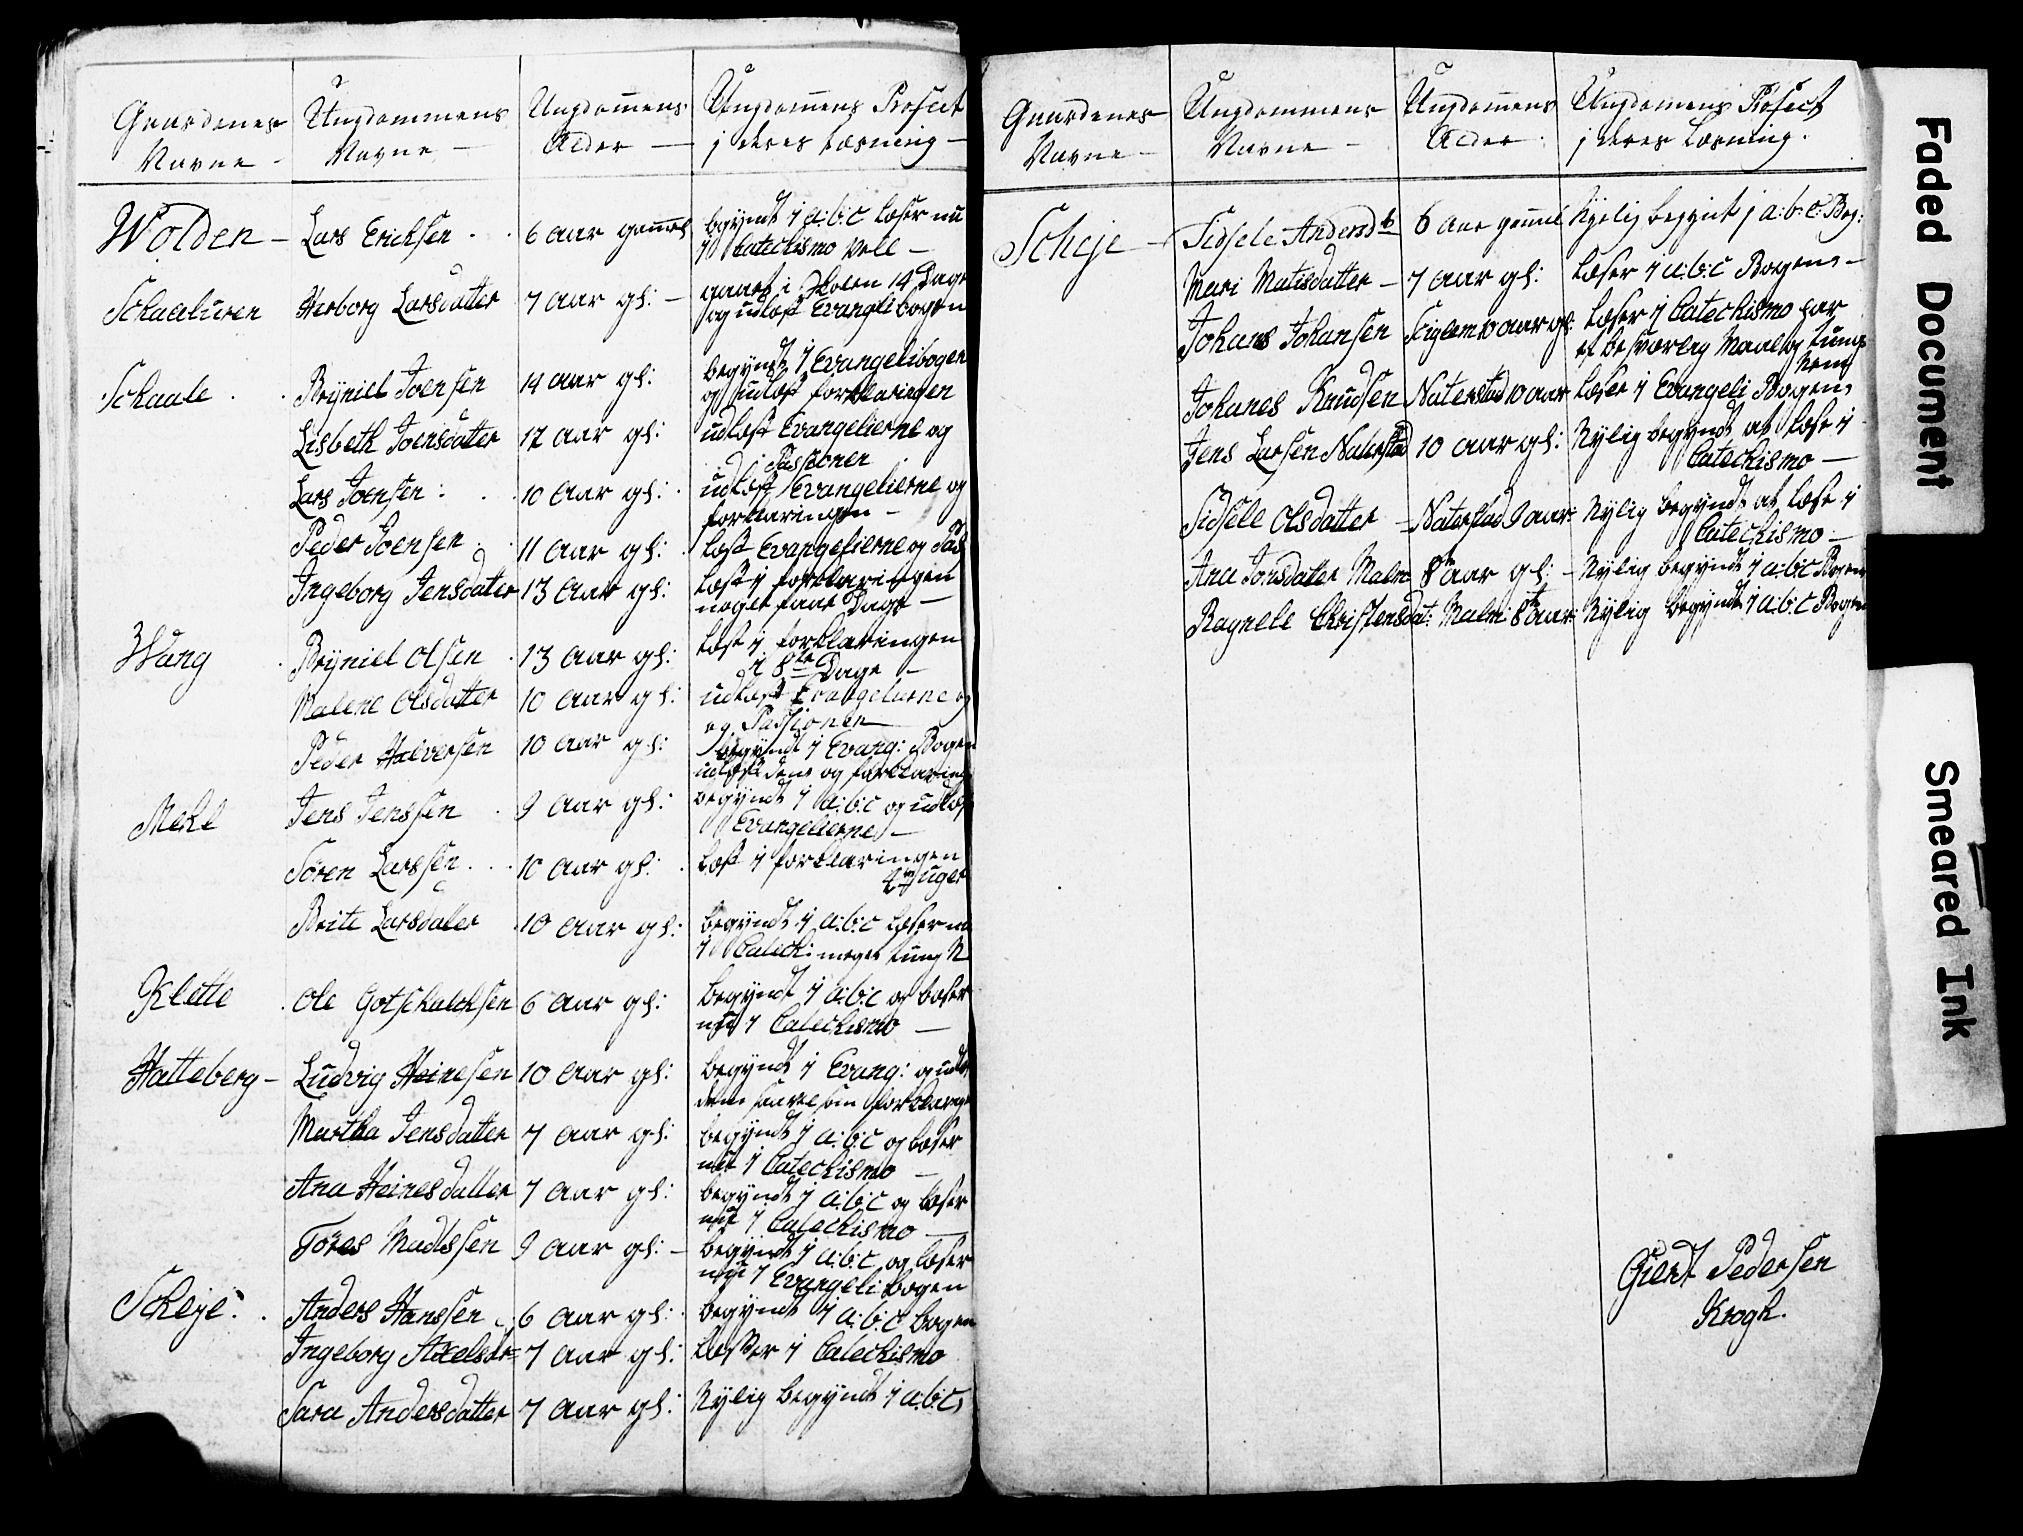 Gaardenes Navne -
Ungdommens Navne —
Ungdom̅ens Alder —
Ungdom̅ens Profect
i deres Læsning —
Wolden - Lars Ericksen . . 6 aar gam̅el begyndt i a:b:c læser nu
i Catechismo vell —
Schaaluren Herborg Larsdatter 7 aar gl: — gaaet i Skolen 14 Dage
og udlæst Evangelibogen
Schaale . . Bryniel Joensen 14 aar gl: begyndt i Evangelibogen
og udlæst forklaringen
Lisbeth Joensdatter 12 aar gl: udlæst Evangelierne og
Passionen
Lars Joensen : . . 10 aar gl: . udlæst Evangelierne og
forklaringen —
Peder Joensen . . 11 aar gl: . læst Evangelierne og Pas
Ingeborg Jensdatter 13 aar gl: læst i forklaringen
noget faae Dage —
Wang . Bryniel Olsen . 13 aar gl: læst i forklaringen
i 8te Dage —
Malene Olsdatter 10 aar gl: udlæst Evangelierne og
og Passionen —
Peder Halversen 10 aar gl: begyndt i Evang: Bogen
udlæst den og forklaring
Mehl Jens Jenssen . 9 aar gl: begyndt i a:b:c og udlæst
Evangelierne —
Sören Larssen . . . 10 aar gl: . læst i forklaringen
4 uger
Brite Larsdatter . 10 aar gl: begyndt i a:b:c læser nu
i Catech: meget tung N
Klette . Ole Gotschalchsen 6 aar gl: begyndt i a:b:c og læser
nu i Catechismo —
Hatteberg - Ludvig Heinesen 10 aar gl: begyndt i Evang: og udl
dem saavel som forklaring
Martha Jensdatter 7 aar gl: begyndt i a:b:c og læser
nu i Catechismo —
Ana Heinesdatter 7 aar gl: begyndt i a:b:c og læser
nu i Catechismo —
Töres Madssen 9 aar gl: — begyndt i a:b:c og læser
nu i Evangeli bogen
Scheje . . Anders Hanssen . 6 aar gl: . begyndt i a:b:c bogen
Ingeborg Axelsdr= 7 aar gl: læsser i Catechismo
Sara Andersdatter 7 aar gl: Nylig begyndt i a:b:c
Gaardenes Navne —
Ungdommens Navne —
Ungdom̅ens Alder .
Ungdom̅ens Profect
i deres Læsning .
Scheje — Sidsele Andersdtr 6 aar gam̅el Nyelig begynt i a:b:c: Bog:
Mari Matisdatter — 7 aar gl: læser i a:b:c Bogen —
Johans Johansen 10 aar gl: læser i Catechismo har
et besværlig Maal og tung
Nem
Johanes Knudsen Naterstad 10 aar læser i Evangeli Bogen
Jens Larsen Naterstad 10 aar gl: Nylig begyndt at læse i
Catechismo —
Sidsele Olsdatter — Naterstad 9 aar: Nylig begyndt at læse i
Catechismo —
Ana Jonsdatter Malm 8te aar gl: — Nylig begyndt i a:b:c Bogen
Ragnele Christensdat: Malm: 8te aar: Nylig begyndt i a:b:c Bogen
Giert Pedersen
Krogh.
Faded Document
Smeared Ink